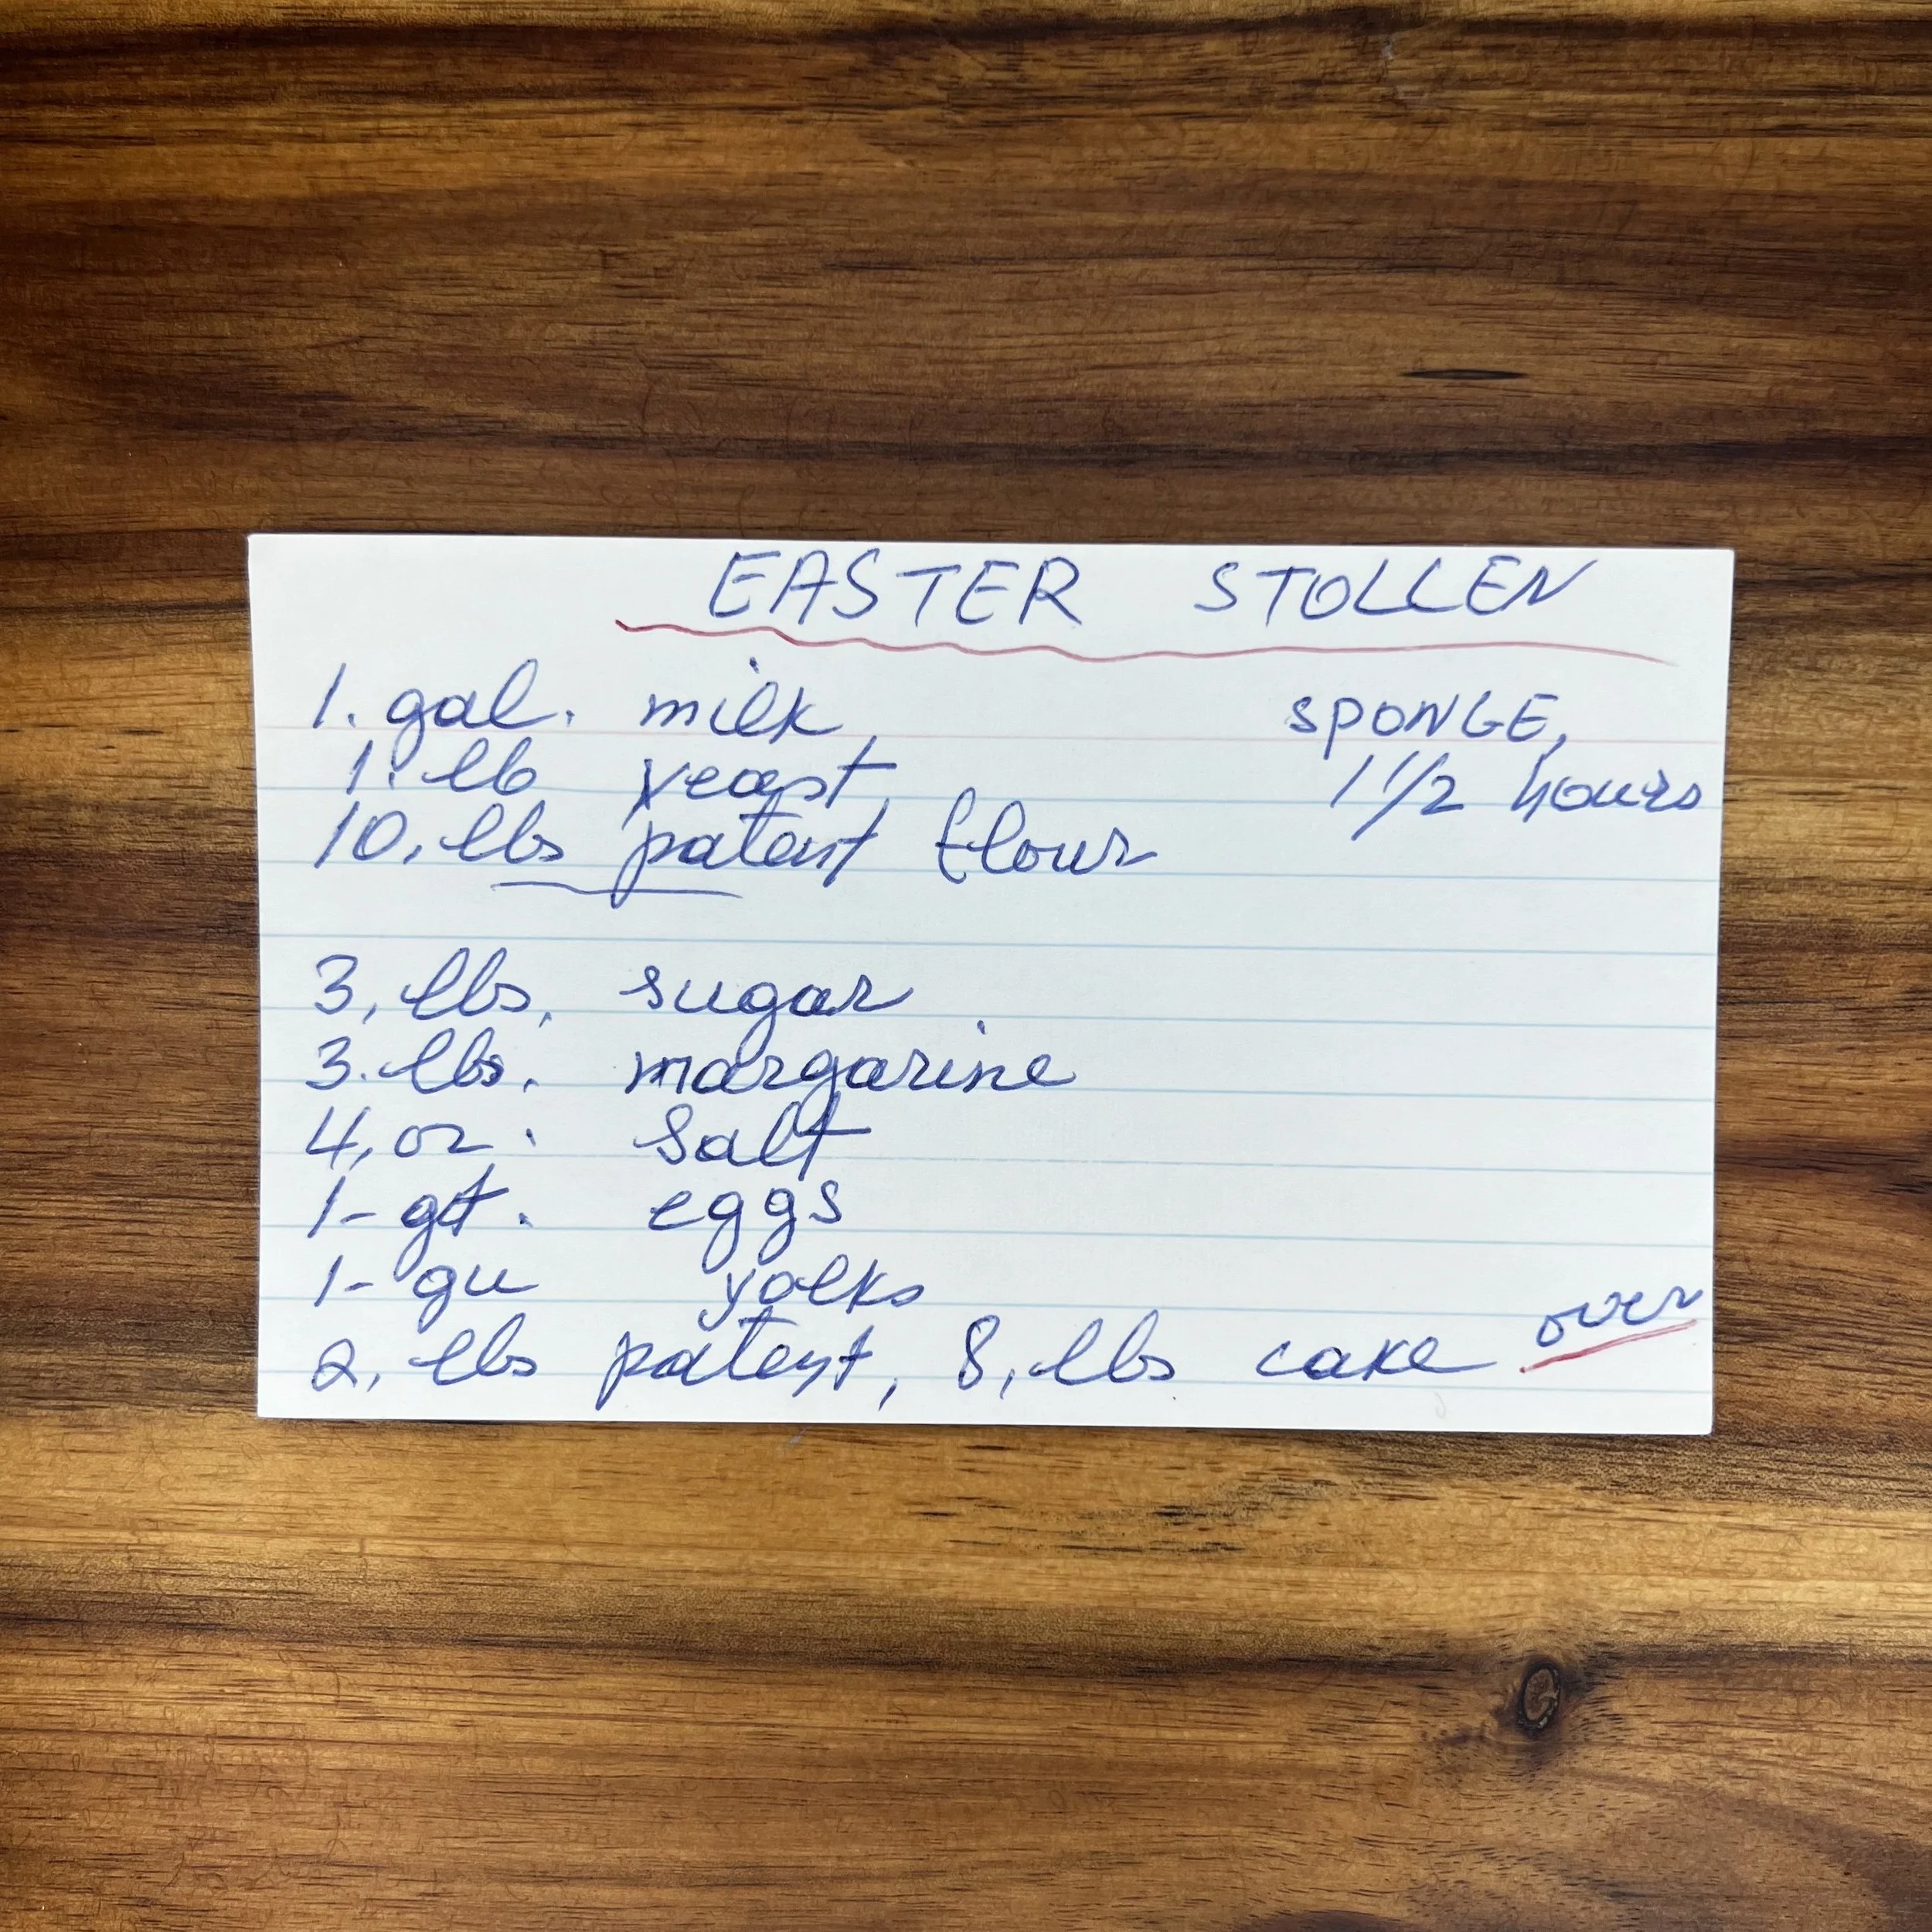 EASTER STOLLEN
1. gal. milk
SPONGE,
1. lb yeast
1 1/2 hours
10, lbs patent flour
3, lbs, sugar
3. lbs. margarine
4, oz. salt
1- qt. eggs
1- qu yolks
2, lbs patent, 8, lbs cake
over